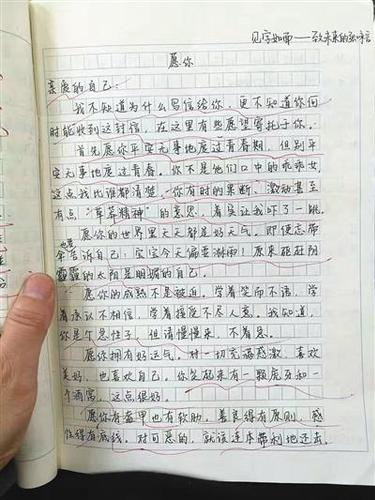 见字如面——致未来的
愿你
亲爱的自己：
我不知道为什么写信给你，更不知道你何
时能收到这封信，在这里有些愿望寄托于你。
首先愿你平安无事地度过青春期，但别平
安无事地度过青春。你不是他们口中的乖乖女，
这点我比谁都清楚。你有时的果断、激动甚至
有点“草莽精神”的意思，着实让我吓了一跳。
愿你的世界里天天都是好天气。即使忘带
也要
伞告诉自己：宝宝今天偏要淋雨！原来驱赶阴
霾的太阳是明媚的自己。
愿你的成熟不是被迫。学着笑而不语，学
着承认不相信，学着接受不尽人意。我知道，
你是个急性子，但请慢慢来，不着急。
愿你拥有好运气。对一切充满感激，喜欢
美好，也喜欢自己。你笑起来有一颗虎牙和一
个酒窝，这点很好。
愿你有盔甲也有软肋，善良得有原则，感
性得有底线。对可恶的，就该连本带利地还击。